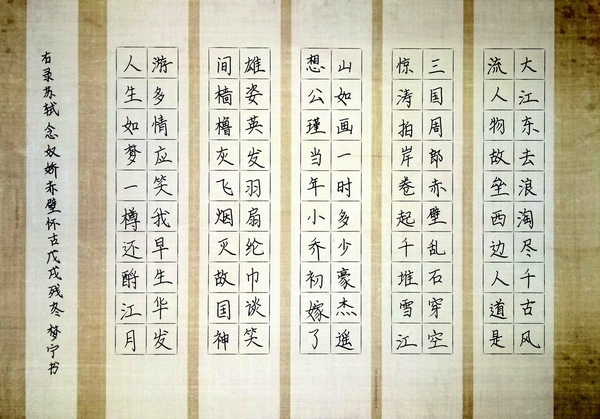 大江东去浪淘尽千古风
流人物故垒西边人道是
三国周郎赤壁乱石穿空
惊涛拍岸卷起千堆雪江
山如画一时多少豪杰遥
想公瑾当年小乔初嫁了
雄姿英发羽扇纶巾谈笑
间樯橹灰飞烟灭故国神
游多情应笑我早生华发
人生如梦一樽还酹江月
右录苏轼念奴娇赤壁怀古戊戌残冬梦宁书